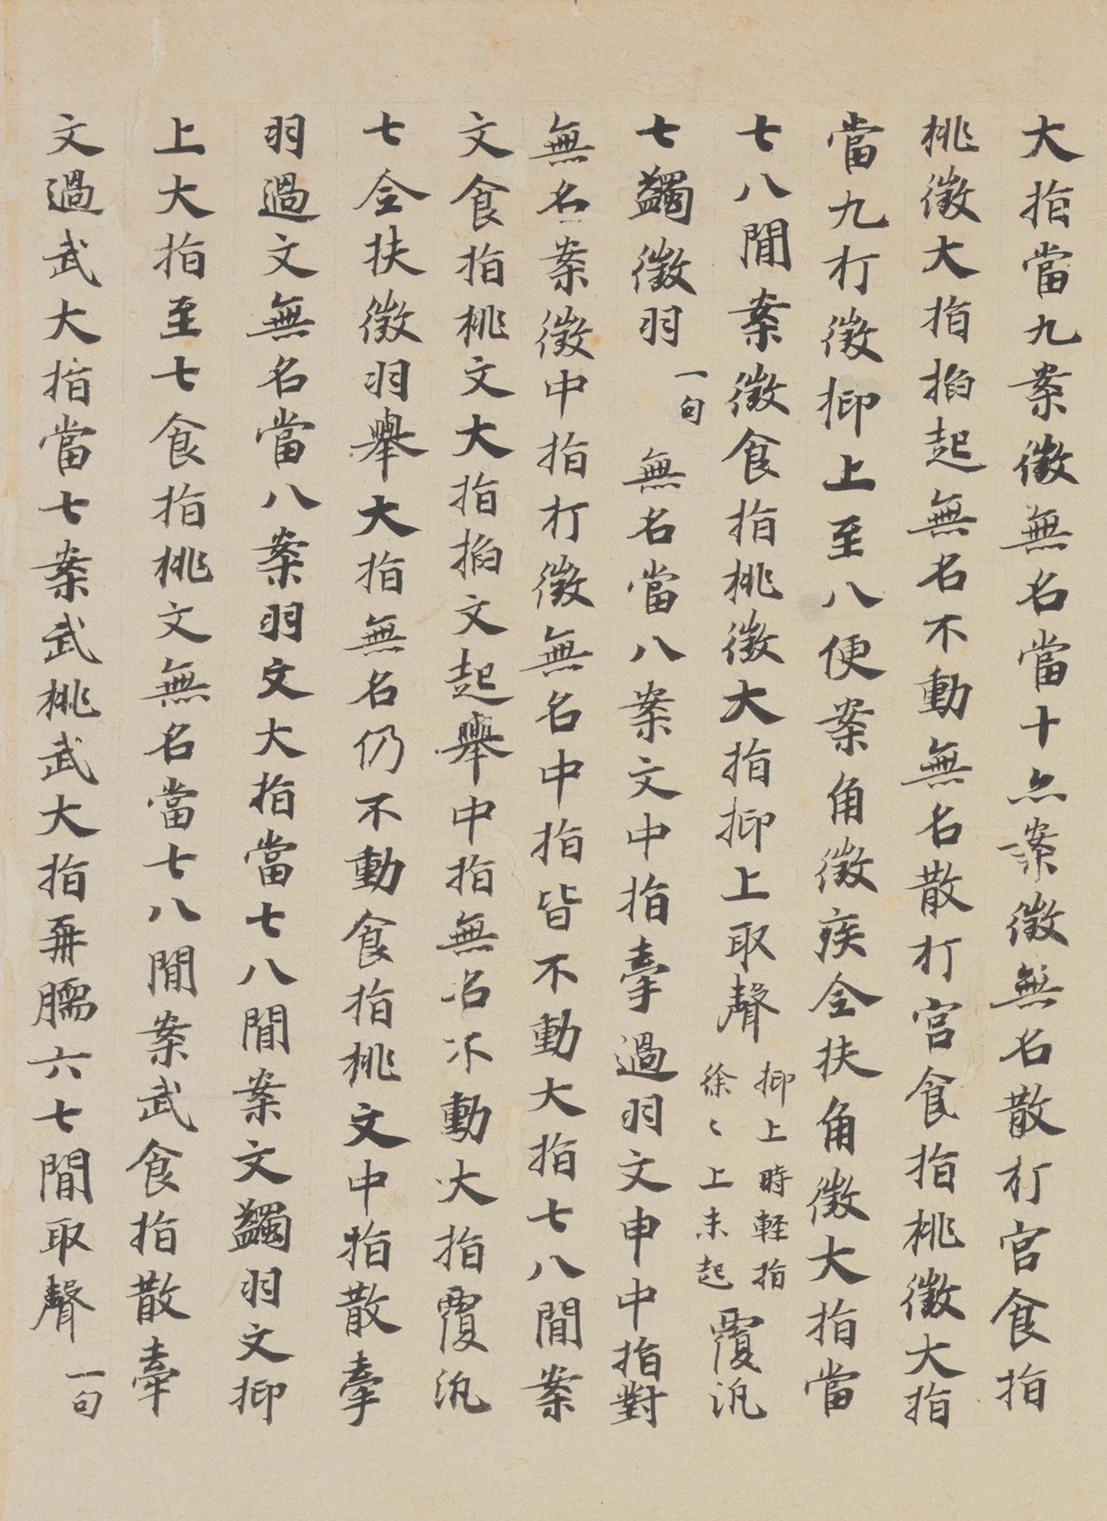 大指當九案徵無名當十亦案徵無名散打宮食指
桃徵大指掐起無名不動無名散打宮食指桃徵大指
當九打徵抑上至八便案角徵疾全扶角徵大指當
七八閒案徵食指桃徵大指抑上取聲
抑上時輕指
徐〻上未起
覆汎
七蠲徵羽
一句
無名當八案文中指牽過羽文申中指對
無名案徵中指打徵無名中指皆不動大指七八閒案
文食指桃文大指掐文起舉中指無名不動大指覆汎
七全扶徵羽舉大指無名仍不動食指桃文中指散牽
羽過文無名當八案羽文大指當七八閒案文蠲羽文抑
上大指至七食指桃文無名當七八閒案武食指散牽
文過武大指當七案武桃武大指再臑六七閒取聲
一句